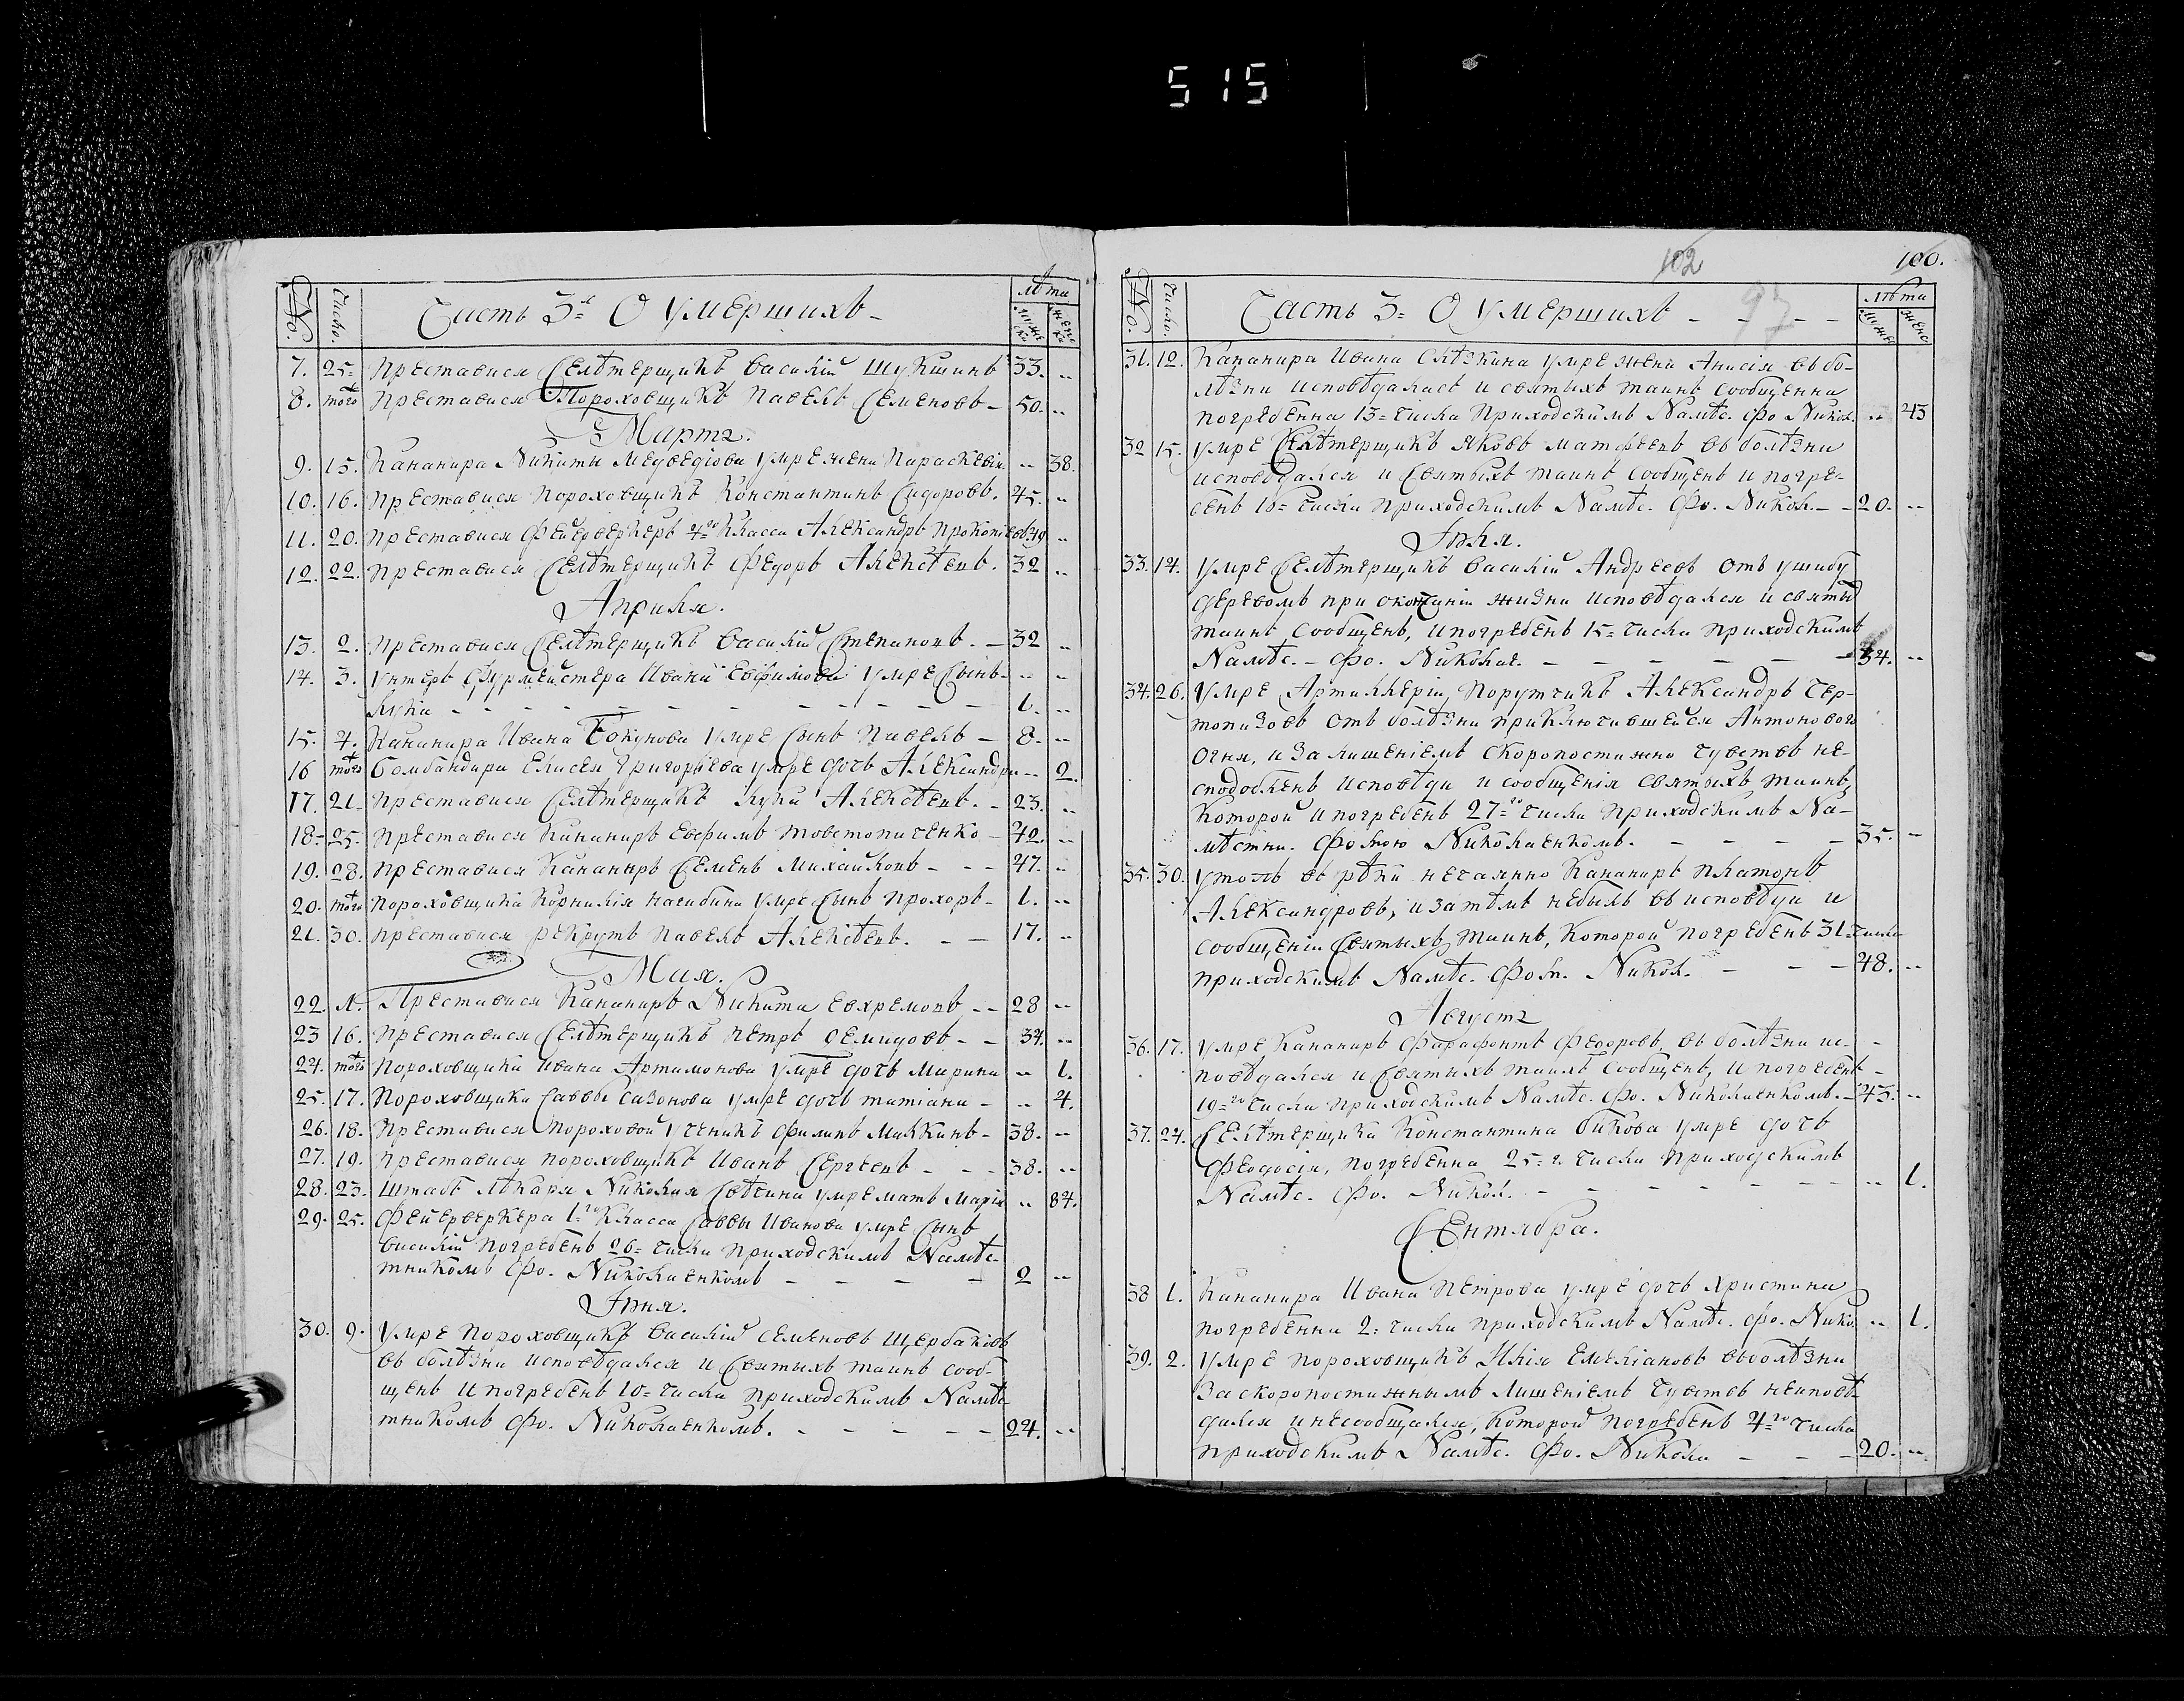 515
№. Число. Часть 3я О умершихъ - лѣта мужеска женска
7. 25. Преставися Селѣтерщикъ Василій Шукшинъ 33. ..
8. того Преставися Пороховщикъ Павелъ Семеновъ - 50. ..
Марта.
9. 15. Кананира Никиты Медведіова умре жена Параскевія .. 38.
10. 16. Преставися Пороховщикъ Константинъ Сидоровъ. 45. ..
11. 20. Преставися Фейерверкеръ 4го Класса Александръ Прокопіевъ 49 ..
12. 22. Преставися Селѣтерщикъ Федоръ Алексѣевъ. 32 ..
Априля.
13. 2. Преставися Селѣтерщикъ Василій Степановъ. - 32 ..
14. 3. Унтеръ Фурмейстера Ивана Евфимова умре Сынъ - .. ..
Лука - - - - - - - - - 1. ..
15. 4. Кананира Ивана Бокунова умре Сынъ Павелъ - 8. ..
16 того Бомбандира Елисея Григорьева умре дочь Александра .. 2.
17. 21. Преставися Селѣтерщикъ Лука Алексѣевъ. - 23. ..
18. 25. Преставися Канониръ Евфимъ Товстопиченко - 42. ..
19. 28. Преставися Кананиръ Семенъ Михайловъ - - - 47. ..
20. того Пороховщика Корнилія Нагибина умре Сынъ Прохоръ - 1. ..
21. 30. Преставися рекрутъ Павелъ Алексѣевъ. - - 17. ..
Мая.
22. 11. Преставися Кананиръ Никита Евхремовъ - - 28 ..
23 16. Преставися Селѣтерщикъ Петръ Демидовъ - - 34. ..
24. того Пороховщика Ивана Артамонова умре дочь Марина .. 1.
25. 17. Пороховщика Саввы Сазонова умре дочь Татіана - .. 4.
26. 18. Преставися Пороховой ученикъ Филипъ Малкинъ - 38. ..
27. 19. Преставися Пороховщикъ Иванъ Сергеевъ - - - 38. ..
28. 23. Штабъ лѣкаря Николая Свѣчина умре мать Марія .. 84.
29. 25. Фейерверкера 1го Класса Саввы Иванова умре Сынъ
Василій погребенъ 26= числа приходскимъ Намѣс-
тникомъ Фо. Николаенкомъ - - - - 2 ..
Іюня.
30. 9. Умре Пороховщикъ Василій Семеновъ Щербаковъ
въ болѣзни исповѣдался и Святыхъ таинъ сооб-
щенъ и погребенъ 10= числа приходскимъ Намѣс-
тникомъ Фо. Николаенкомъ. - - - - - 24. ..
102 100.
97
№. Число. Часть 3= О умершихъ - - - - лѣта мужес женс
31. 12. Канонира Ивана Слѣзкина умре жена Анисія въ бо-
лѣзни исповѣдалась и святыхъ таинъ сообщенна
погребенна 13= числа приходскимъ Намѣс. Фо Никол. .. 43
32 15. Умре Селѣтерщикъ Яковъ Матфеевъ въ болѣзни
исповѣдался и Святыхъ таинъ сообщенъ и погре-
бенъ 16= числа приходскимъ Намѣс. Фо. Никол. - - 20. ..
Іюля.
33. 14. Умре Селѣтерщикъ Василій Андреевъ отъ ушибу
деревомъ при окончаніи жизни исповѣдался и святыхъ
таинъ сообщенъ, и погребенъ 15= числа приходскимъ
Намѣс. - Фо. Николае. - - - - - - 34. ..
34. 26. Умре Артиллеріи Порутчикъ Александръ Чер-
топизовъ отъ болѣзни приключившейся Антонового
огня, и за лишеніемъ скоропостижно чувствъ не-
сподобленъ исповѣди и сообщенія святыхъ таинъ,
которой и погребенъ 27го числа приходскимъ На-
мѣстни. Фотою Николаенкомъ. - - - - 35. -
35. 30. Утопъ въ рѣки нечаянно Кананиръ Платонъ
Александровъ, и за тѣмъ небылъ въ исповѣди и
сообщеніи Святыхъ таинъ, которой погребенъ 31= числа
приходскимъ Намѣс. Фот. Никол. - - - 48. ..
Августа
36. 17. Умре Кананиръ Фарафонтъ Федоровъ, въ болѣзни ис-
повѣдался и Святыхъ таинъ сообщенъ, и погребенъ -
19го числа приходскимъ Намѣс. Фо. Николаенкомъ. - 45. ..
37. 24. Селѣтерщика Константина Бикова умре дочь
Феодосія, погребенна 25= г. числа приходскимъ
Намѣс. Фо. Никол. - - - - - - - .. 1.
Сентября.
38 1. Кананира Ивана Петрова умре дочь Христина
погребенна 2= числа приходскимъ Намѣс. Фо. Нико. .. 1.
39. 2. Умре Пороховщикъ Илія Емеліановъ въ болѣзни
за скоропостижнымъ лишеніемъ чувствъ неисповѣ-
дался и несообщался, которой погребенъ 4го числа
приходскимъ Намѣс. Фо. Никола - - - 20. ..